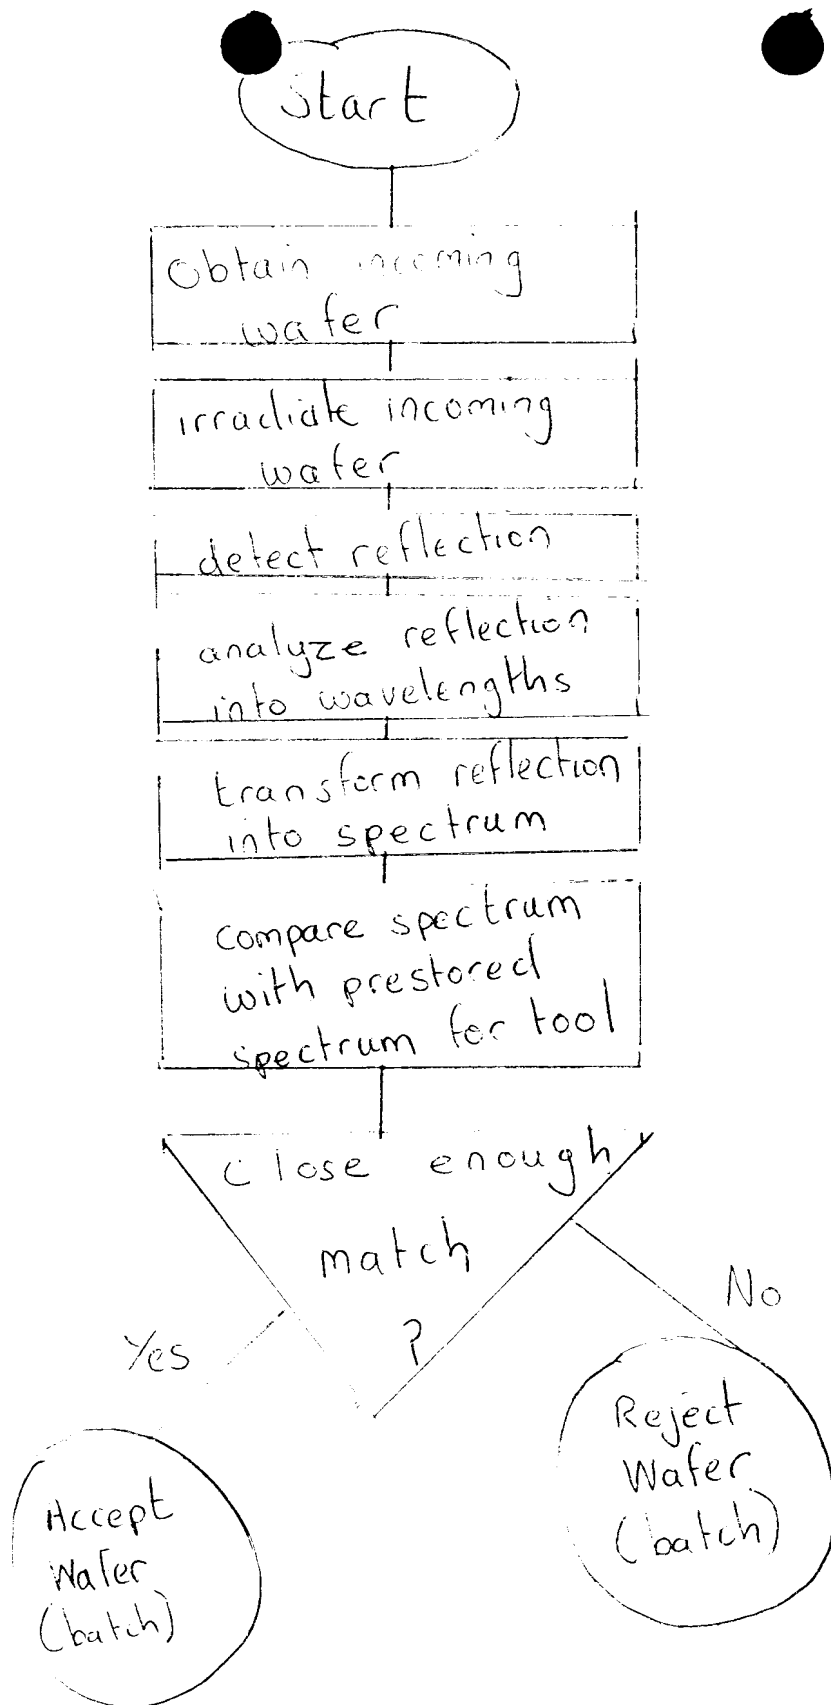 Start
Obtain incoming
wafer
irradiate incoming
wafer
detect reflection
analyze reflection
into wavelengths
transform reflection
into spectrum
compare spectrum
with prestored
spectrum for tool
Close enough
match
?
Yes
No
Accept
Wafer
(batch)
Reject
Wafer
(batch)